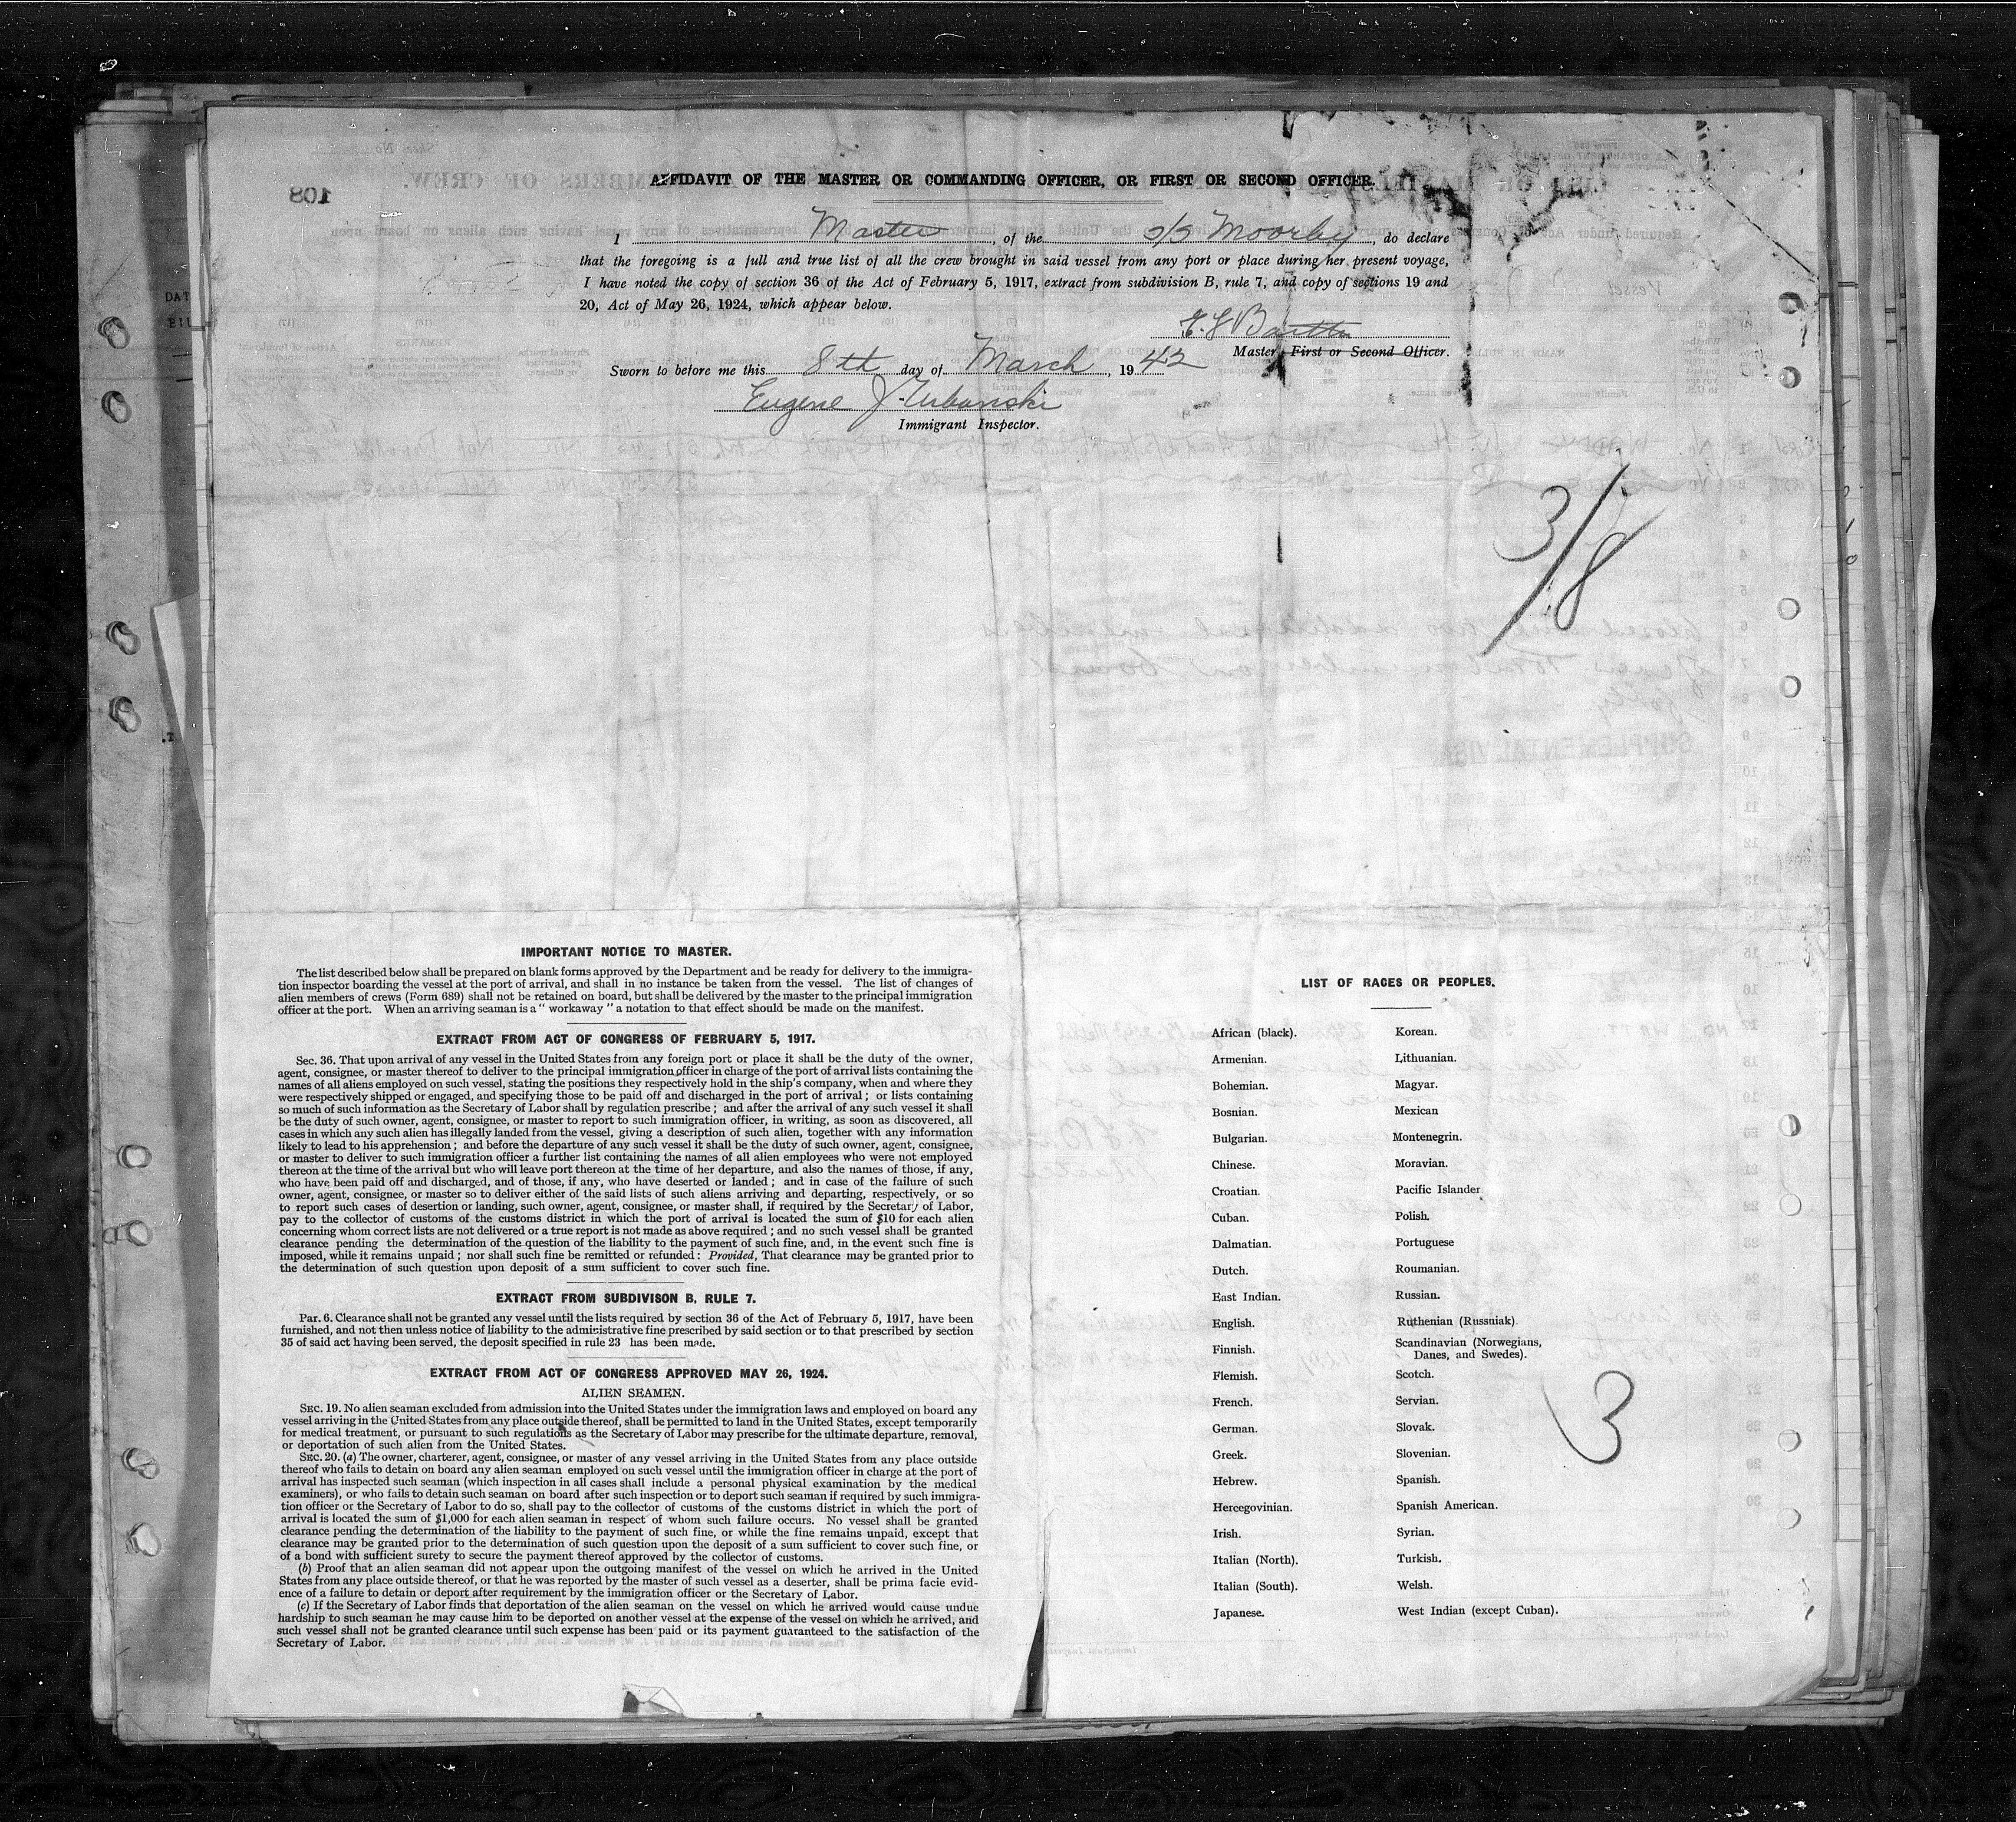 AFFIDAVIT OF THE MASTER OR COMMANDING OFFICER, OR FIRST OR SECOND OFFICER.
108
I Master, of the s/s Moorby, do declare
that the foregoing is a full and true list of all the crew brought in said vessel from any port or place during her present voyage,
I have noted the copy of section 36 of the Act of February 5, 1917, extract from subdivision B, rule 7, and copy of sections 19 and
20, Act of May 26, 1924, which appear below.
Master, First or Second Officer.
Sworn to before me this 8th day of March, 1942
Eugene J. Urbanski
Immigrant Inspector.
3/8
IMPORTANT NOTICE TO MASTER.
The list described below shall be prepared on blank forms approved by the Department and be ready for delivery to the immigra-
tion inspector boarding the vessel at the port of arrival, and shall in no instance be taken from the vessel. The list of changes of
alien members of crews (Form 689) shall not be retained on board, but shall be delivered by the master to the principal immigration
officer at the port. When an arriving seaman is a "workaway" a notation to that effect should be made on the manifest.
EXTRACT FROM ACT OF CONGRESS OF FEBRUARY 5, 1917.
Sec. 36. That upon arrival of any vessel in the United States from any foreign port or place it shall be the duty of the owner,
agent, consignee, or master thereof to deliver to the principal immigration officer in charge of the port of arrival lists containing the
names of all aliens employed on such vessel, stating the positions they respectively hold in the ship's company, when and where they
were respectively shipped or engaged, and specifying those to be paid off and discharged in the port of arrival; or lists containing
so much of such information as the Secretary of Labor shall by regulation prescribe; and after the arrival of any such vessel it shall
be the duty of such owner, agent, consignee, or master to report to such immigration officer, in writing, as soon as discovered, all
cases in which any such alien has illegally landed from the vessel, giving a description of such alien, together with any information
likely to lead to his apprehension; and before the departure of any such vessel it shall be the duty of such owner, agent, consignee,
or master to deliver to such immigration officer a further list containing the names of all alien employees who were not employed
thereon at the time of the arrival but who will leave port thereon at the time of her departure, and also the names of those, if any,
who have been paid off and discharged, and of those, if any, who have deserted or landed; and in case of the failure of such
owner, agent, consignee, or master so to deliver either of the said lists of such aliens arriving and departing, respectively, or so
to report such cases of desertion or landing, such owner, agent, consignee, or master shall, if required by the Secretary of Labor,
pay to the collector of customs of the customs district in which the port of arrival is located the sum of $10 for each alien
concerning whom correct lists are not delivered or a true report is not made as above required; and no such vessel shall be granted
clearance pending the determination of the question of the liability to the payment of such fine, and, in the event such fine is
imposed, while it remains unpaid; nor shall such fine be remitted or refunded: Provided, That clearance may be granted prior to
the determination of such question upon deposit of a sum sufficient to cover such fine.
EXTRACT FROM SUBDIVISON B, RULE 7.
Par. 6. Clearance shall not be granted any vessel until the lists required by section 36 of the Act of February 5, 1917, have been
furnished, and not then unless notice of liability to the administrative fine prescribed by said section or to that prescribed by section
35 of said act having been served, the deposit specified in rule 23 has been made.
EXTRACT FROM ACT OF CONGRESS APPROVED MAY 26, 1924.
ALIEN SEAMEN.
SEC. 19. No alien seaman excluded from admission into the United States under the immigration laws and employed on board any
vessel arriving in the United States from any place outside thereof, shall be permitted to land in the United States, except temporarily
for medical treatment, or pursuant to such regulations as the Secretary of Labor may prescribe for the ultimate departure, removal,
or deportation of such alien from the United States.
SEC. 20. (a) The owner, charterer, agent, consignee, or master of any vessel arriving in the United States from any place outside
thereof who fails to detain on board any alien seaman employed on such vessel until the immigration officer in charge at the port of
arrival has inspected such seaman (which inspection in all cases shall include a personal physical examination by the medical
examiners), or who fails to detain such seaman on board after such inspection or to deport such seaman if required by such immigra-
tion officer or the Secretary of Labor to do so, shall pay to the collector of customs of the customs district in which the port of
arrival is located the sum of $1,000 for each alien seaman in respect of whom such failure occurs. No vessel shall be granted
clearance pending the determination of the liability to the payment of such fine, or while the fine remains unpaid, except that
clearance may be granted prior to the determination of such question upon the deposit of a sum sufficient to cover such fine, or
of a bond with sufficient surety to secure the payment thereof approved by the collector of customs.
(b) Proof that an alien seaman did not appear upon the outgoing manifest of the vessel on which he arrived in the United
States from any place outside thereof, or that he was reported by the master of such vessel as a deserter, shall be prima facie evid-
ence of a failure to detain or deport after requirement by the immigration officer or the Secretary of Labor.
(c) If the Secretary of Labor finds that deportation of the alien seaman on the vessel on which he arrived would cause undue
hardship to such seaman he may cause him to be deported on another vessel at the expense of the vessel on which he arrived, and
such vessel shall not be granted clearance until such expense has been paid or its payment guaranteed to the satisfaction of the
Secretary of Labor.
LIST OF RACES OR PEOPLES.
African (black). Korean.
Armenian. Lithuanian.
Bohemian. Magyar.
Bosnian. Mexican
Bulgarian. Montenegrin.
Chinese. Moravian.
Croatian. Pacific Islander
Cuban. Polish.
Dalmatian. Portuguese
Dutch. Roumanian.
East Indian. Russian.
English. Ruthenian (Russniak)
Finnish. Scandinavian (Norwegians,
Danes, and Swedes).
Flemish. Scotch.
French. Servian.
German. Slovak.
Greek. Slovenian.
Hebrew. Spanish.
Hercegovinian. Spanish American.
Irish. Syrian.
Italian (North). Turkish.
Italian (South). Welsh.
Japanese. West Indian (except Cuban).
3